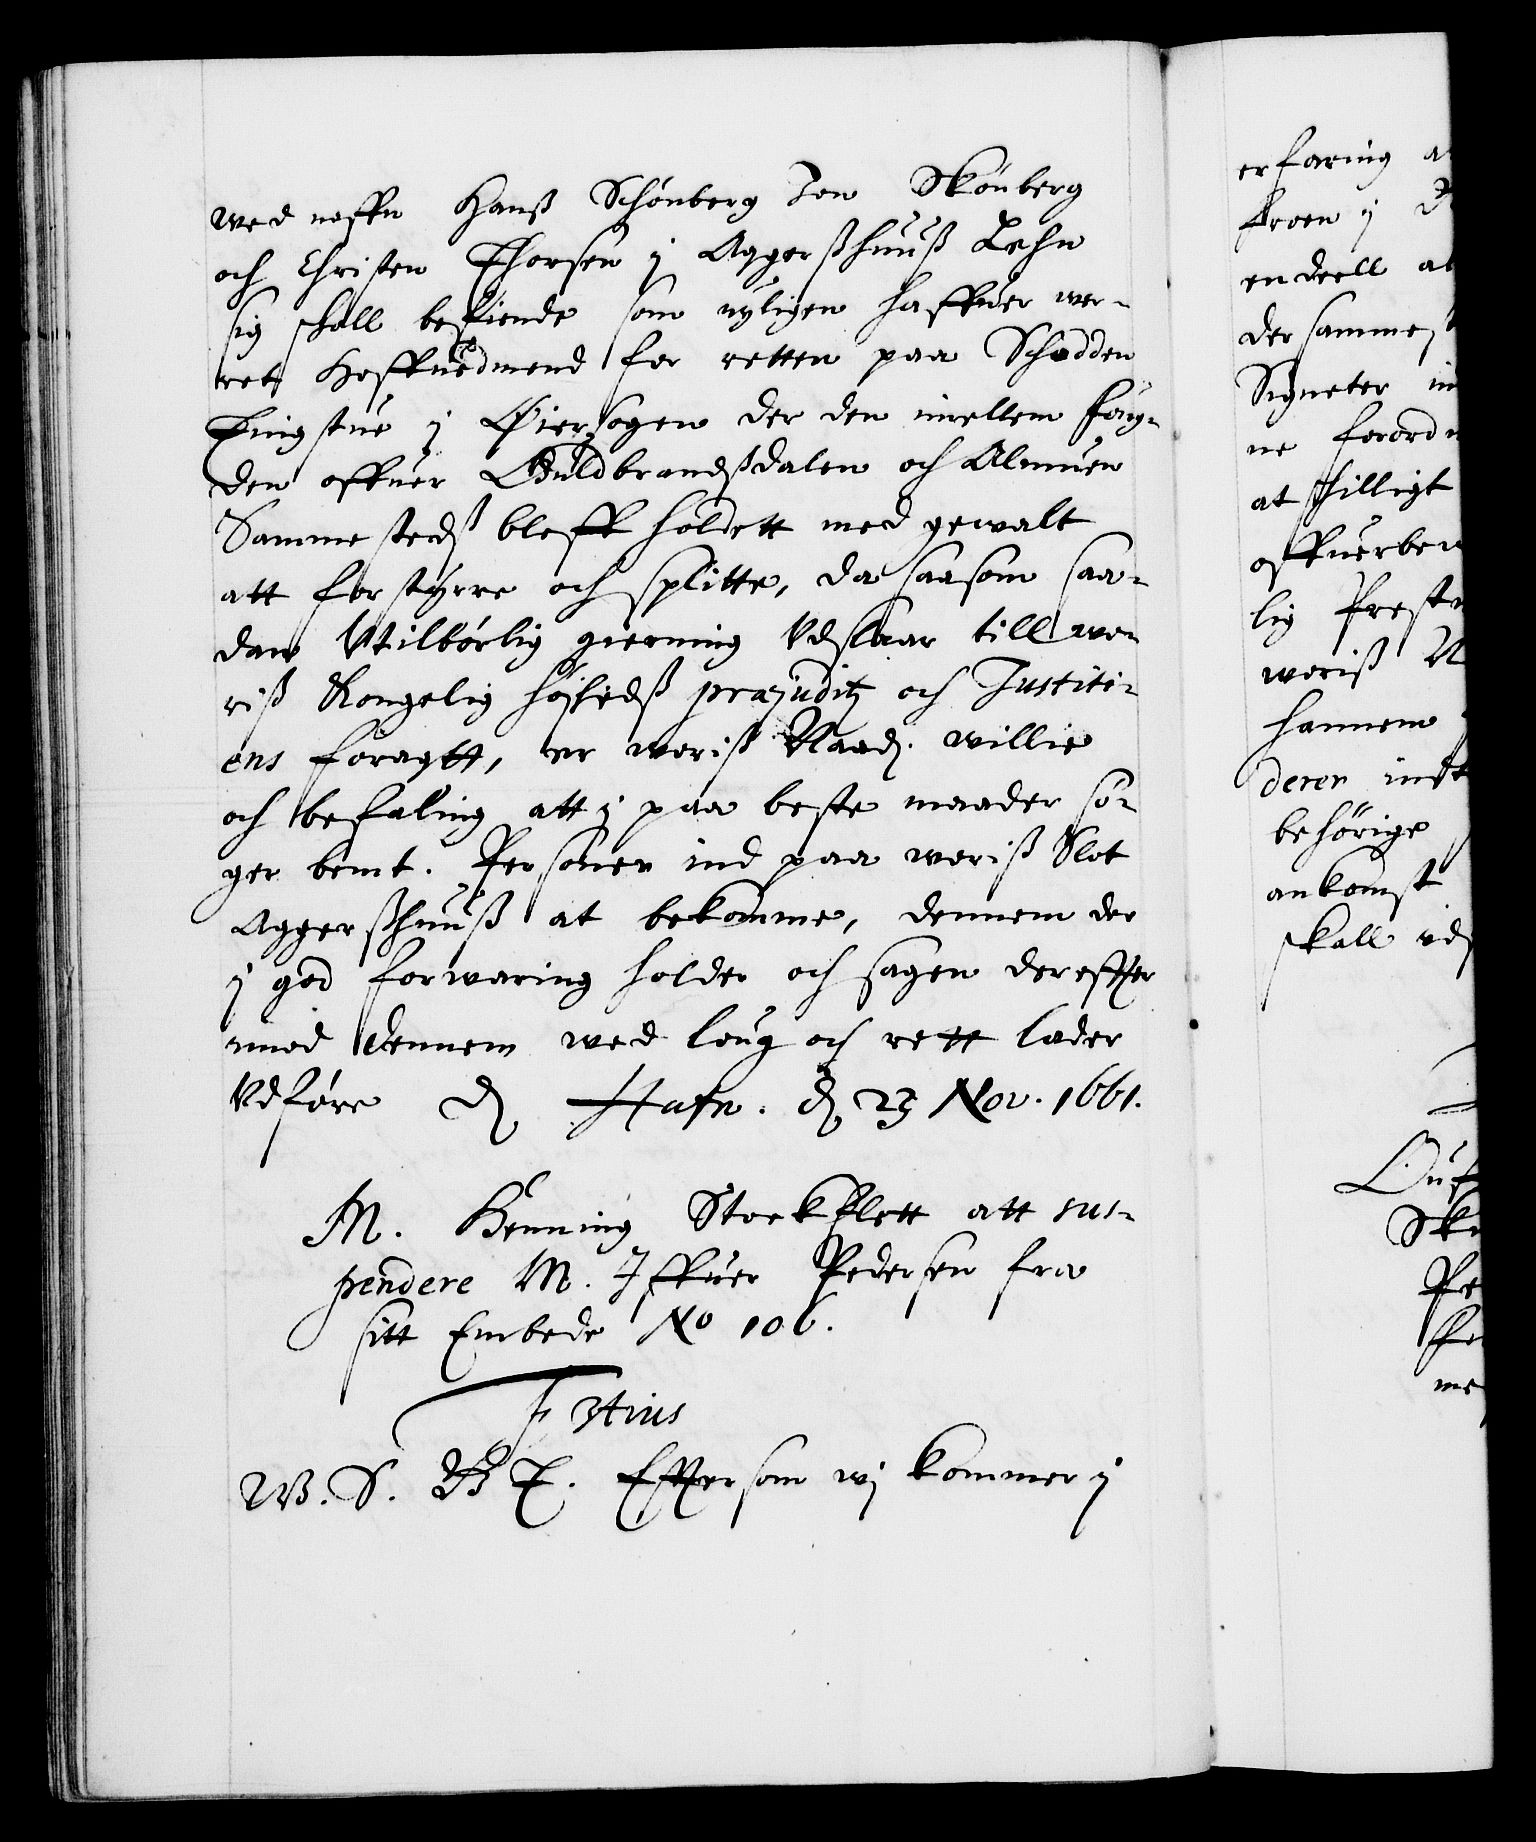 wed naffn Hanß Schönberg Jon Skönberg
och Christen Thorsen y Aggerßhuuß Lehn
sig skall befinde som nyligen haffuer wer-
ret Hoffuedmend for retten paa Schadden
Tingstue y Öiersogen der den imellem fou-
den offuer Guldbrandßdalen och Almuen
Sammestedß bleff holdett med gewalt
att forstyrre och splitte, da saasom saa-
dan Utilbörlig gierning Udslaar till wo-
riß Kongelig höjhedß præjuditz och Justiti-
ens foragtt, er woriß Naad. willie
och befaling att y paa beste maader sö-
ger bemt. Personer ind paa woriß Slot
Aggerßhuuß at bekomme, dennem der
y god forwaring holder och sagen derefter
imod dennem wed loug och rett lader
Udföre D Hafn. d 23 Nov. 1661.
M. Henning Stockflett att sus-
pendere M. Iffuer Pedersen fra
sitt Embede No 106.
F 3tius
W. S. B T. Eftersom wj kommer y
erfaring a
froen y
en deell at
der sammest
Signeter in
ne forordn
at skilligt
offuerbew
lig Prest
woriß N
hannem
derer indt
behörige
ankomst
skall uds
Ouf
Sk
Pe
me